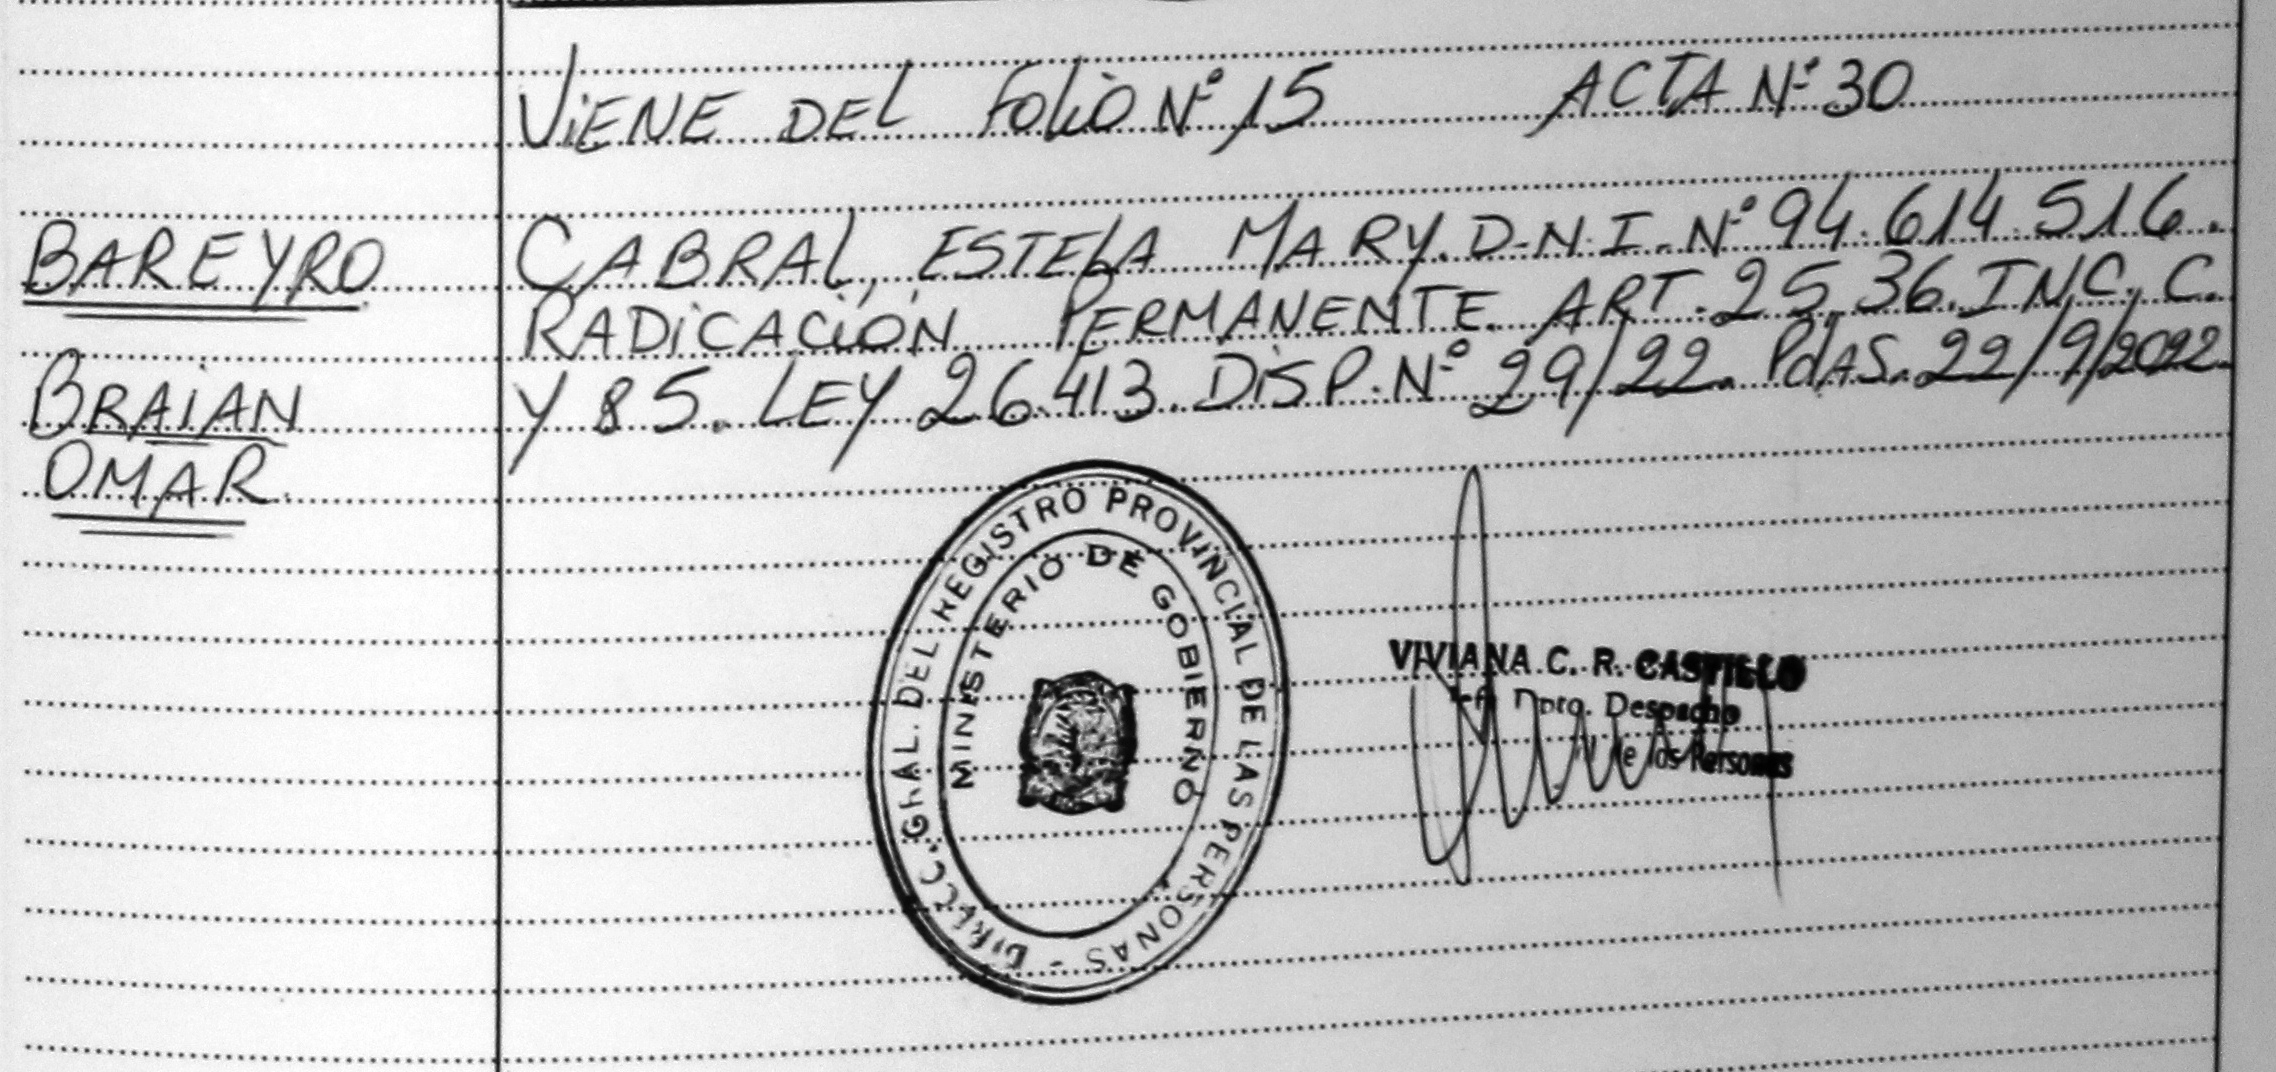 VIENE DEL FOLIO Nº 15 ACTA Nº 30
BAREYRO
BRAIAN
OMAR
CABRAL, ESTELA MARY. D.N.I. Nº 94.614.516.
RADICACIÓN PERMANENTE. ART. 25, 36. INC. C.
Y 85. LEY 26.413. DISP. Nº 29/22. PDAS. 22/9/2022.
GRAL. DEL REGISTRO PROVINCIAL DE LAS PERSONAS -
MINISTERIO DE GOBIERNO
VIVIANA C. R. CASTILLO
Dpto. Despacho
de las Personas